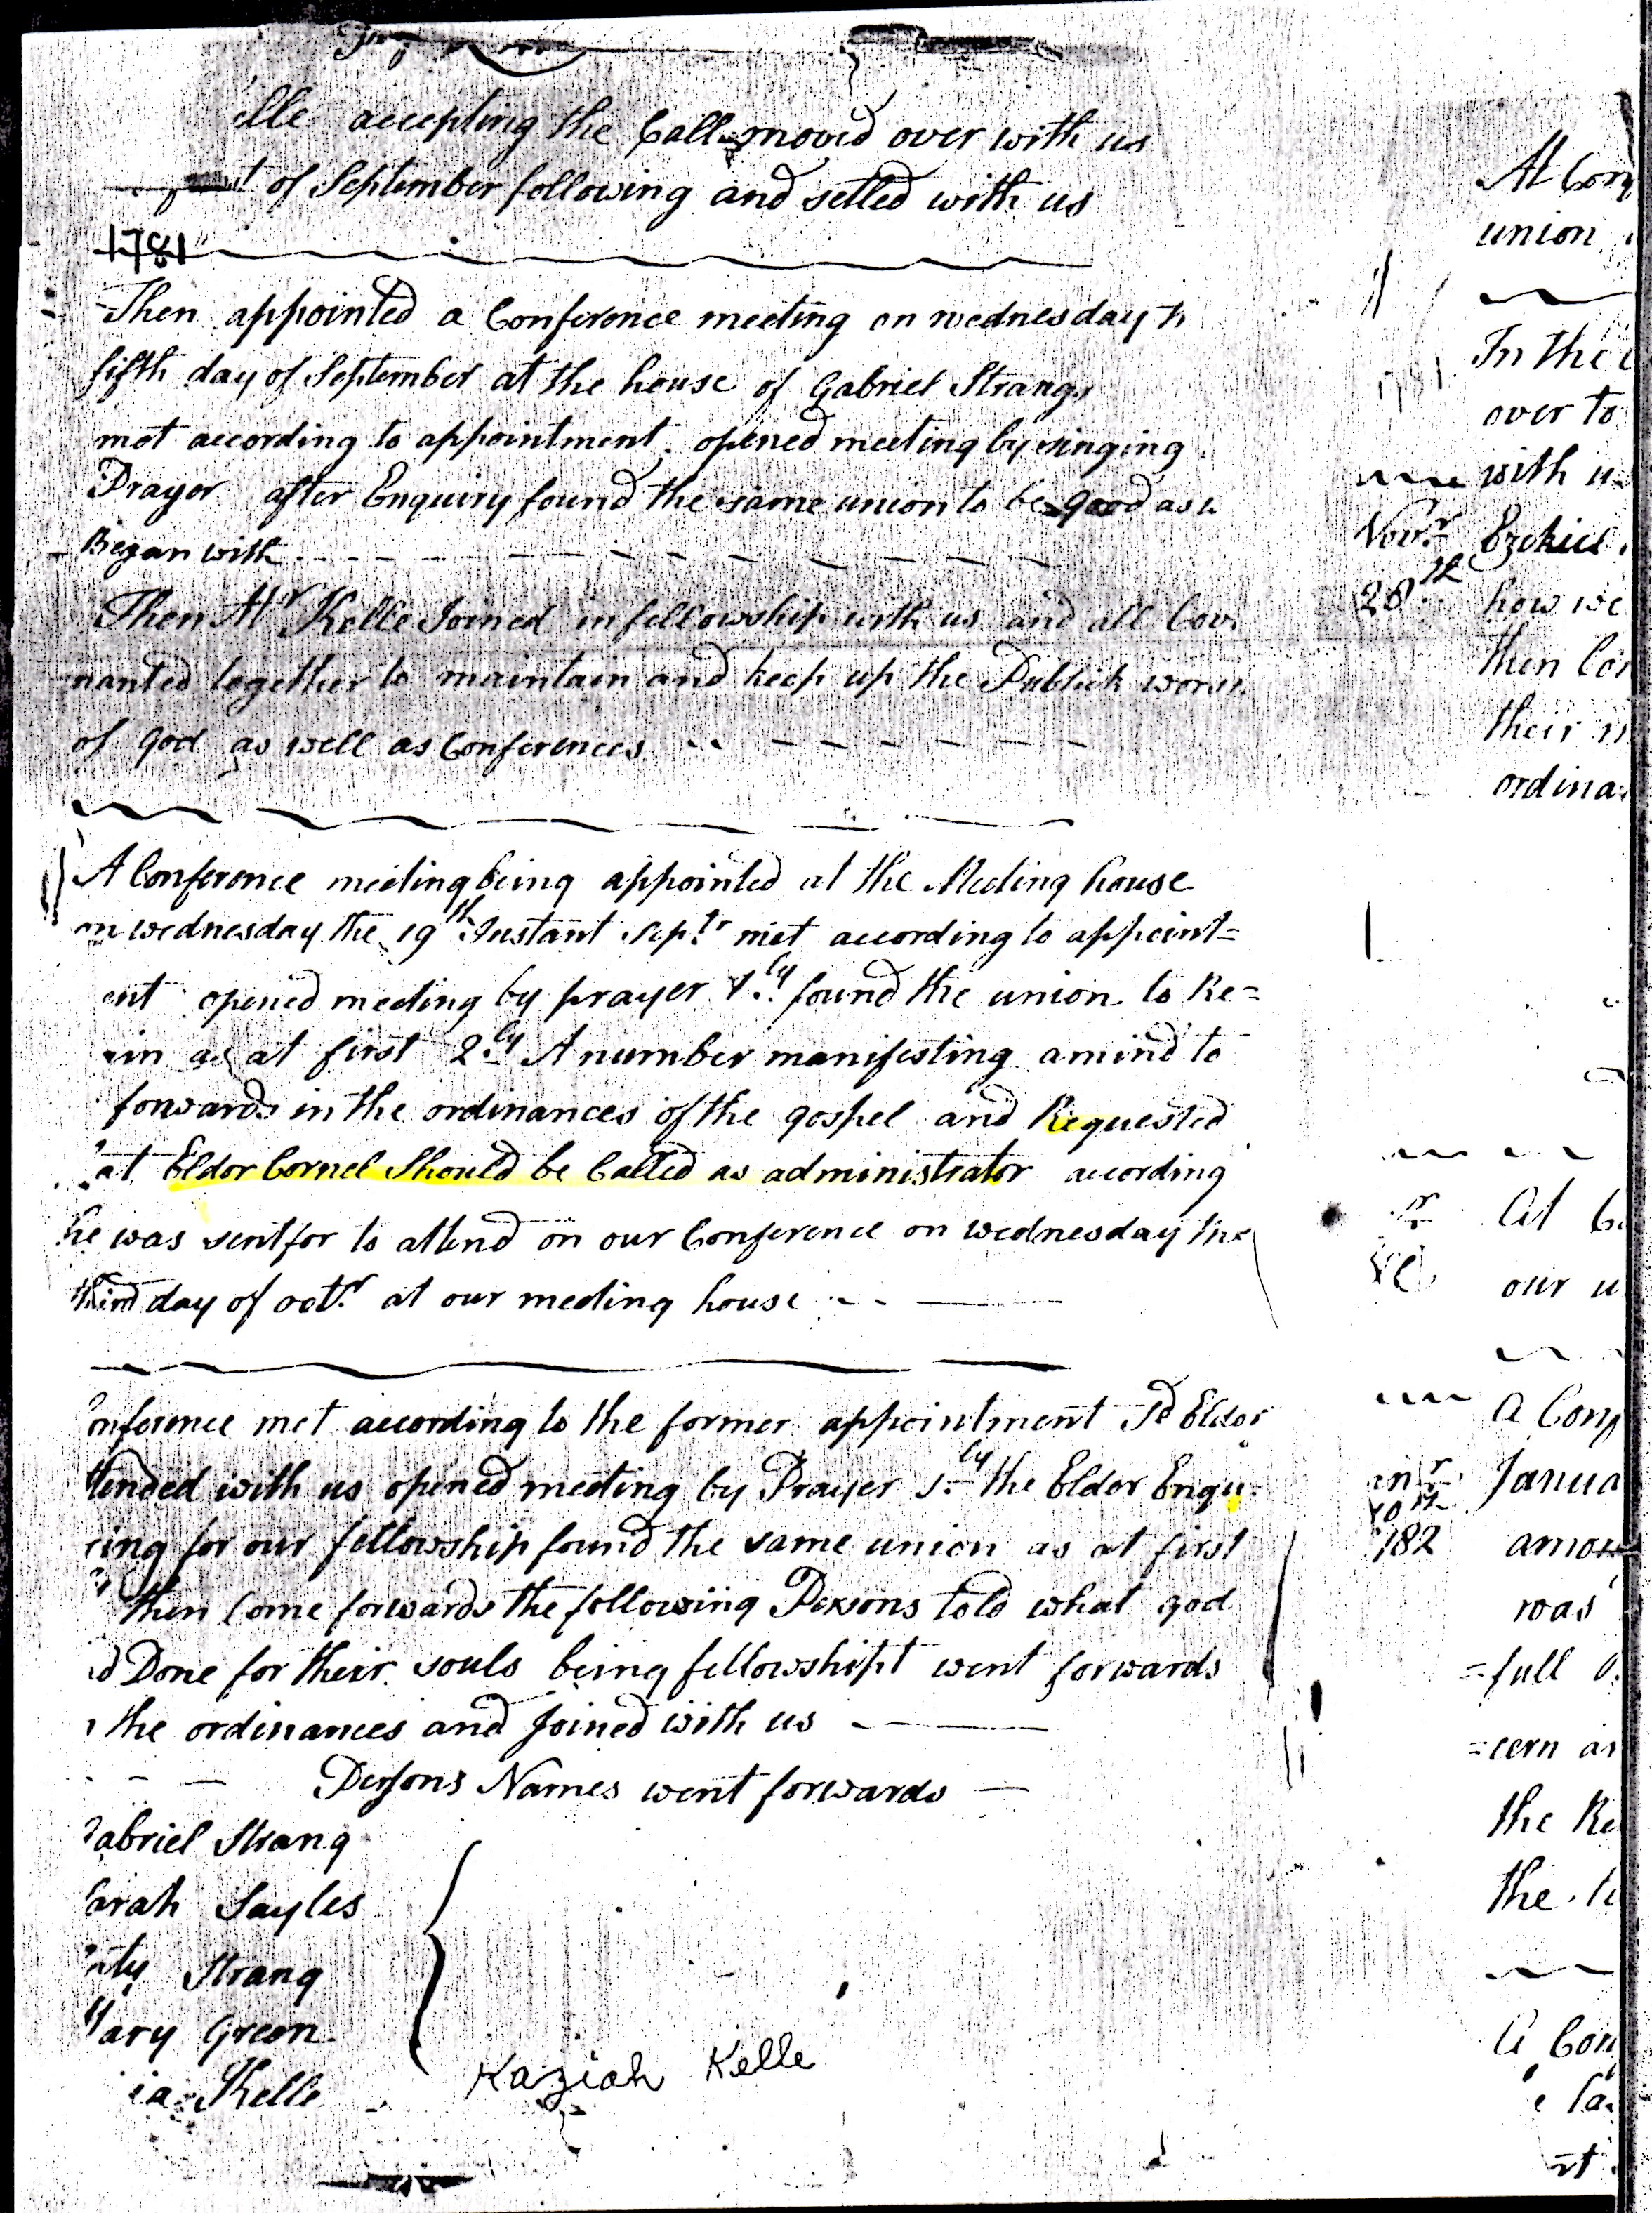 elle accepting the Call moved over with us
of September following and setled with us
1781
Then appointed a Conference meeting on wednesday
fifth day of September at the house of Gabriel Strangs
met according to appointment. opened meeting by singing
Prayer after Enquiry found the same union to be good as
Began with
Then Mr Kelle Joined in fellowship with us and all Cov
nanted together to maintain and keep up the Publick wors
of god as well as Conferences
A Conference meeting being appointed at the Meeting house
on wednesday the 19th Instant Septr met according to appoint=
ent opened meeting by prayer 1ly found the union to Re=
ain as at first 2ly A number manifesting a mind to
forwards in the ordinances of the gospel and Requested
at Eldor Cornel Should be Called as administrator according
he was sent for to attend on our Conference on wednesday the
third day of octr at our meeting house
onference met according to the former appointment Sd Eldor
ttended with us opened meeting by Prayer 1ly the Eldor Enqu=
ring for our fellowship found the same union as at first
then Come forwards the following Persons told what god
d Done for their souls being fellowshipt went forwards
the ordinances and Joined with us
Persons Names went forwards
Gabriel Strang
Sarah Sayles
Strang
Mary Green
ia Kelle
Kaziah Kelle
At Con
union
In the
over to
with u
Novr Ezekiel
28th how we
then Con
their
ordina
At
our u
A Conf
anr Janua
10th
182 amo
was
=full
=cern as
the Re
the
A Con